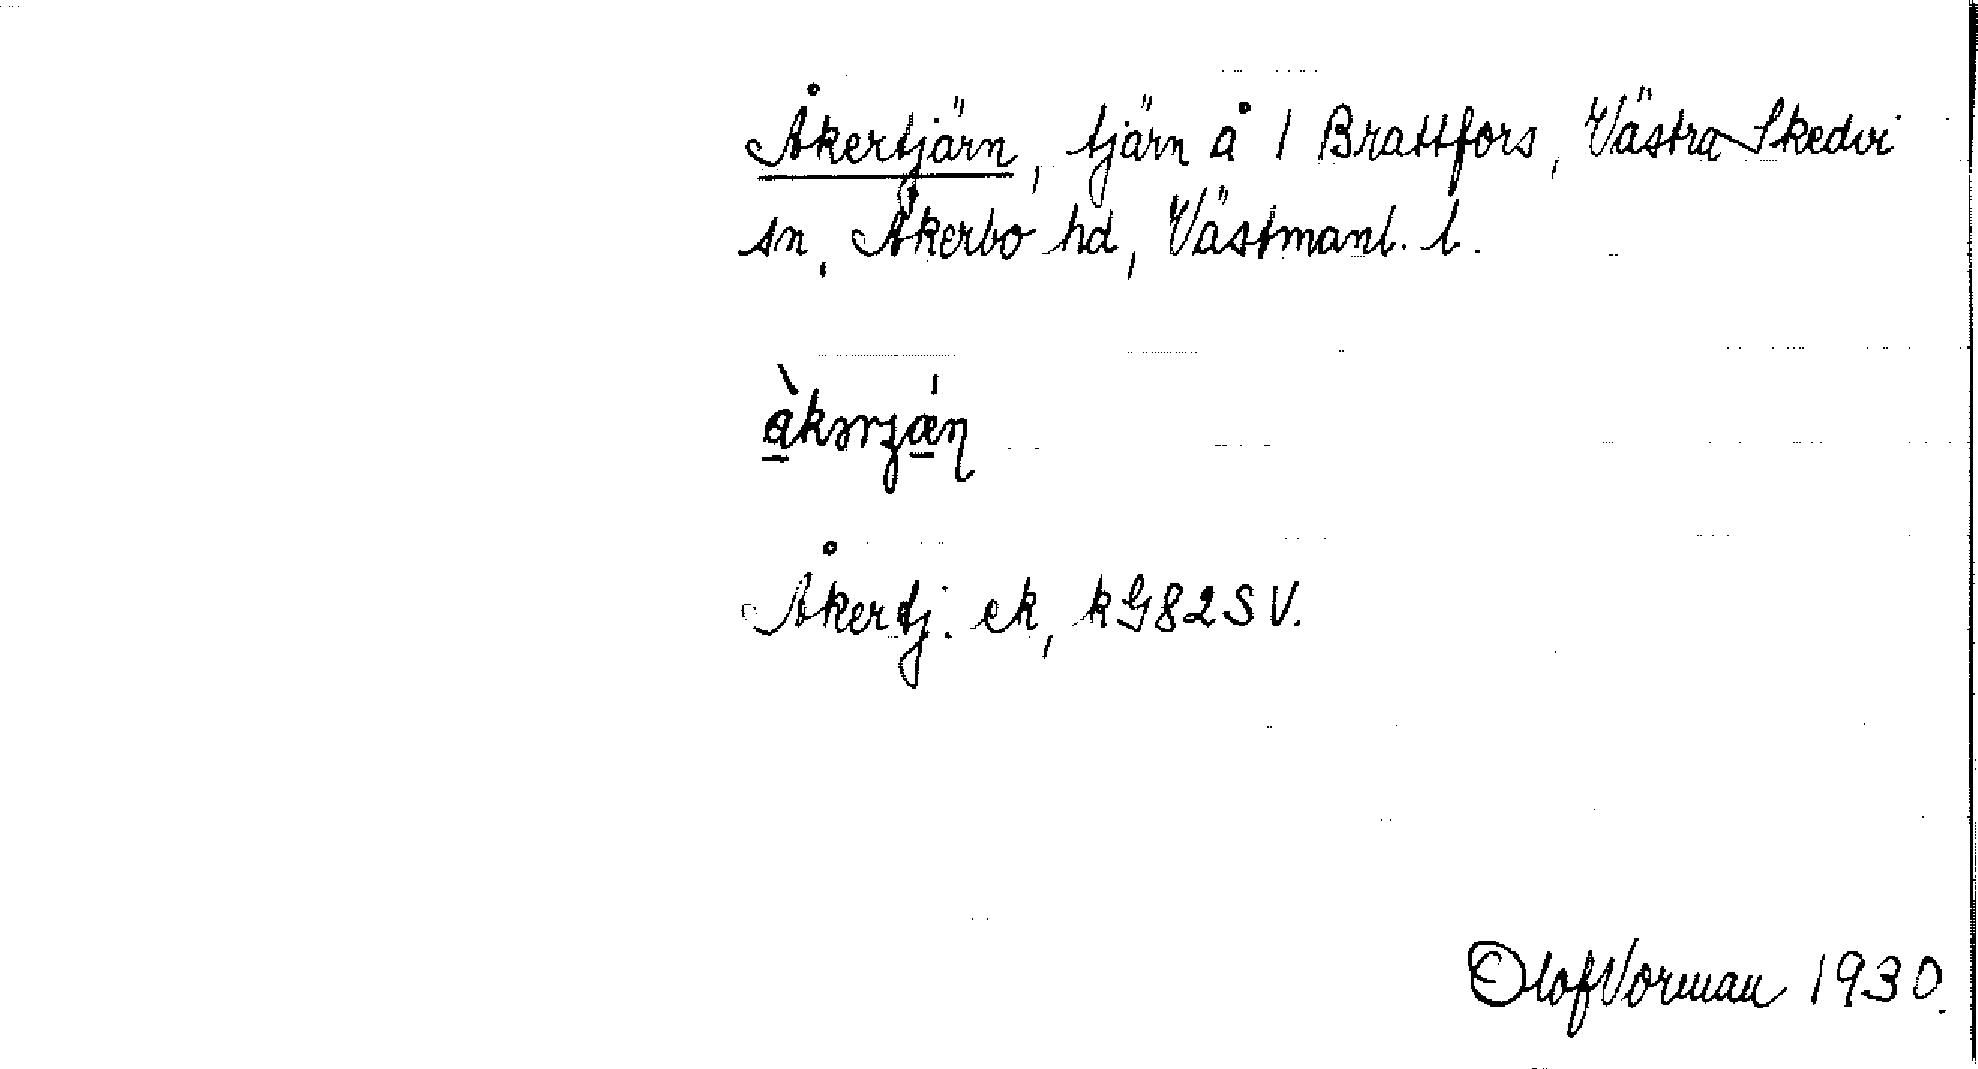 Åkertjärn, tjärn å 1 Brattfors, Västra Skedvi
sn, Åkerbo hd, Västmanl. l.
Åkertj. ek, kG82SV.
Olof Vorman 1930.